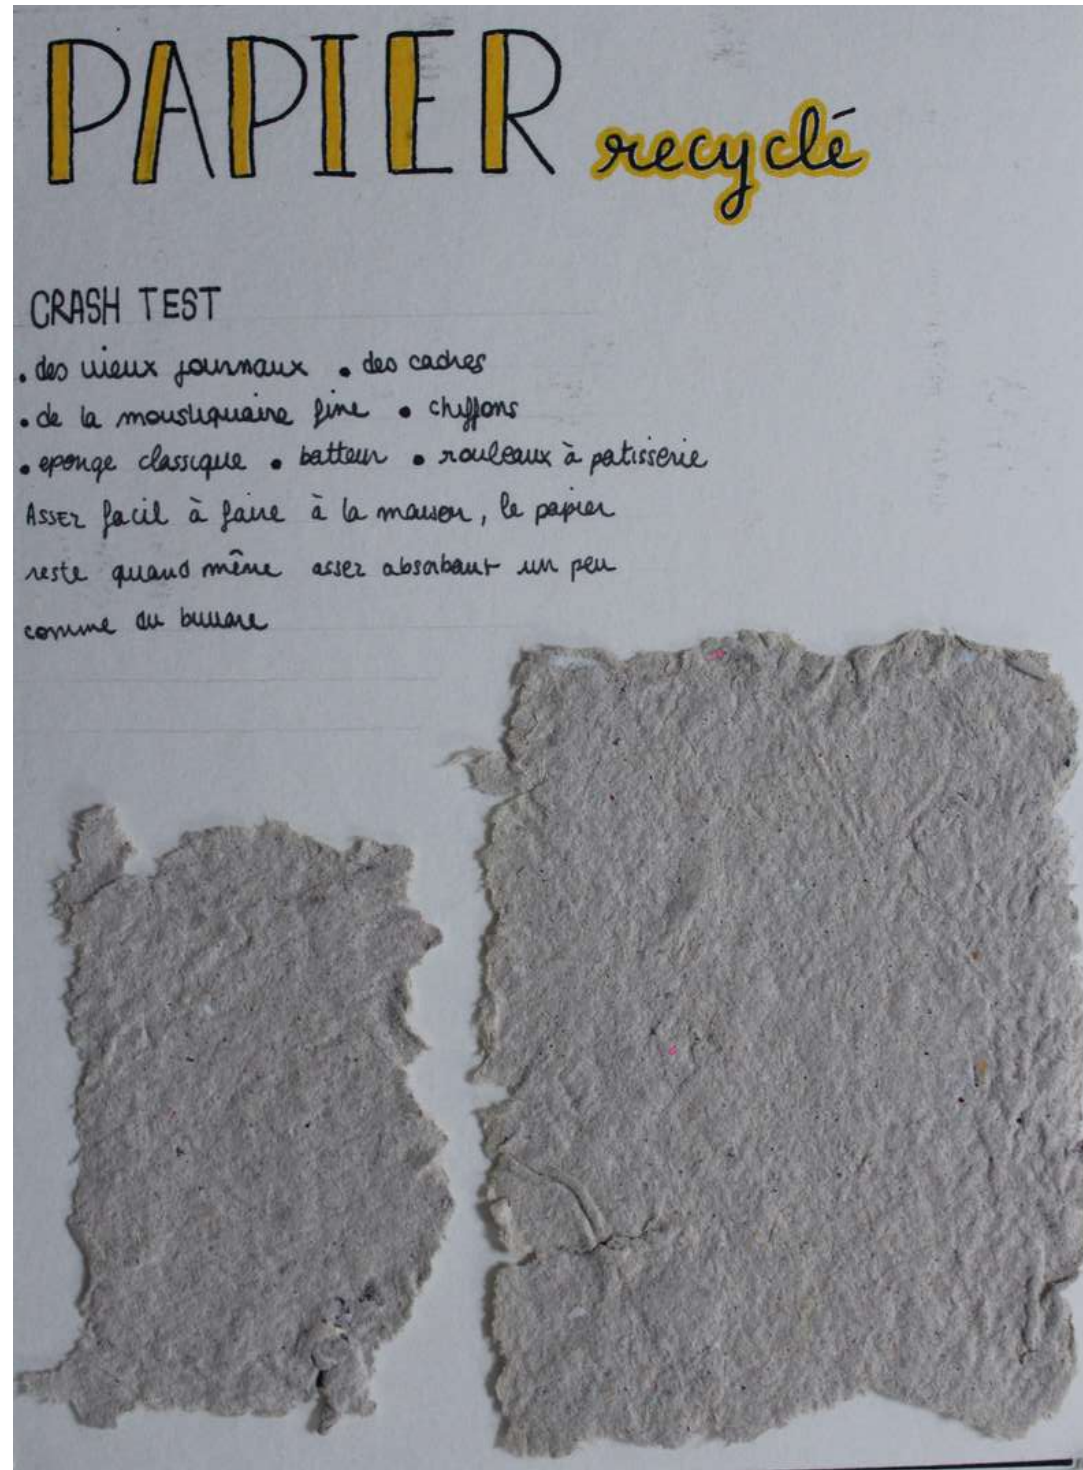 PAPIER recyclé
CRASH TEST
• des vieux journaux • des cadres
• de la moustiquaire fine • chiffons
• eponge classique • batteur • rouleaux à patisserie
Assez facil à faire à la maison, le papier
reste quand même assez absorbant un peu
comme du buvare